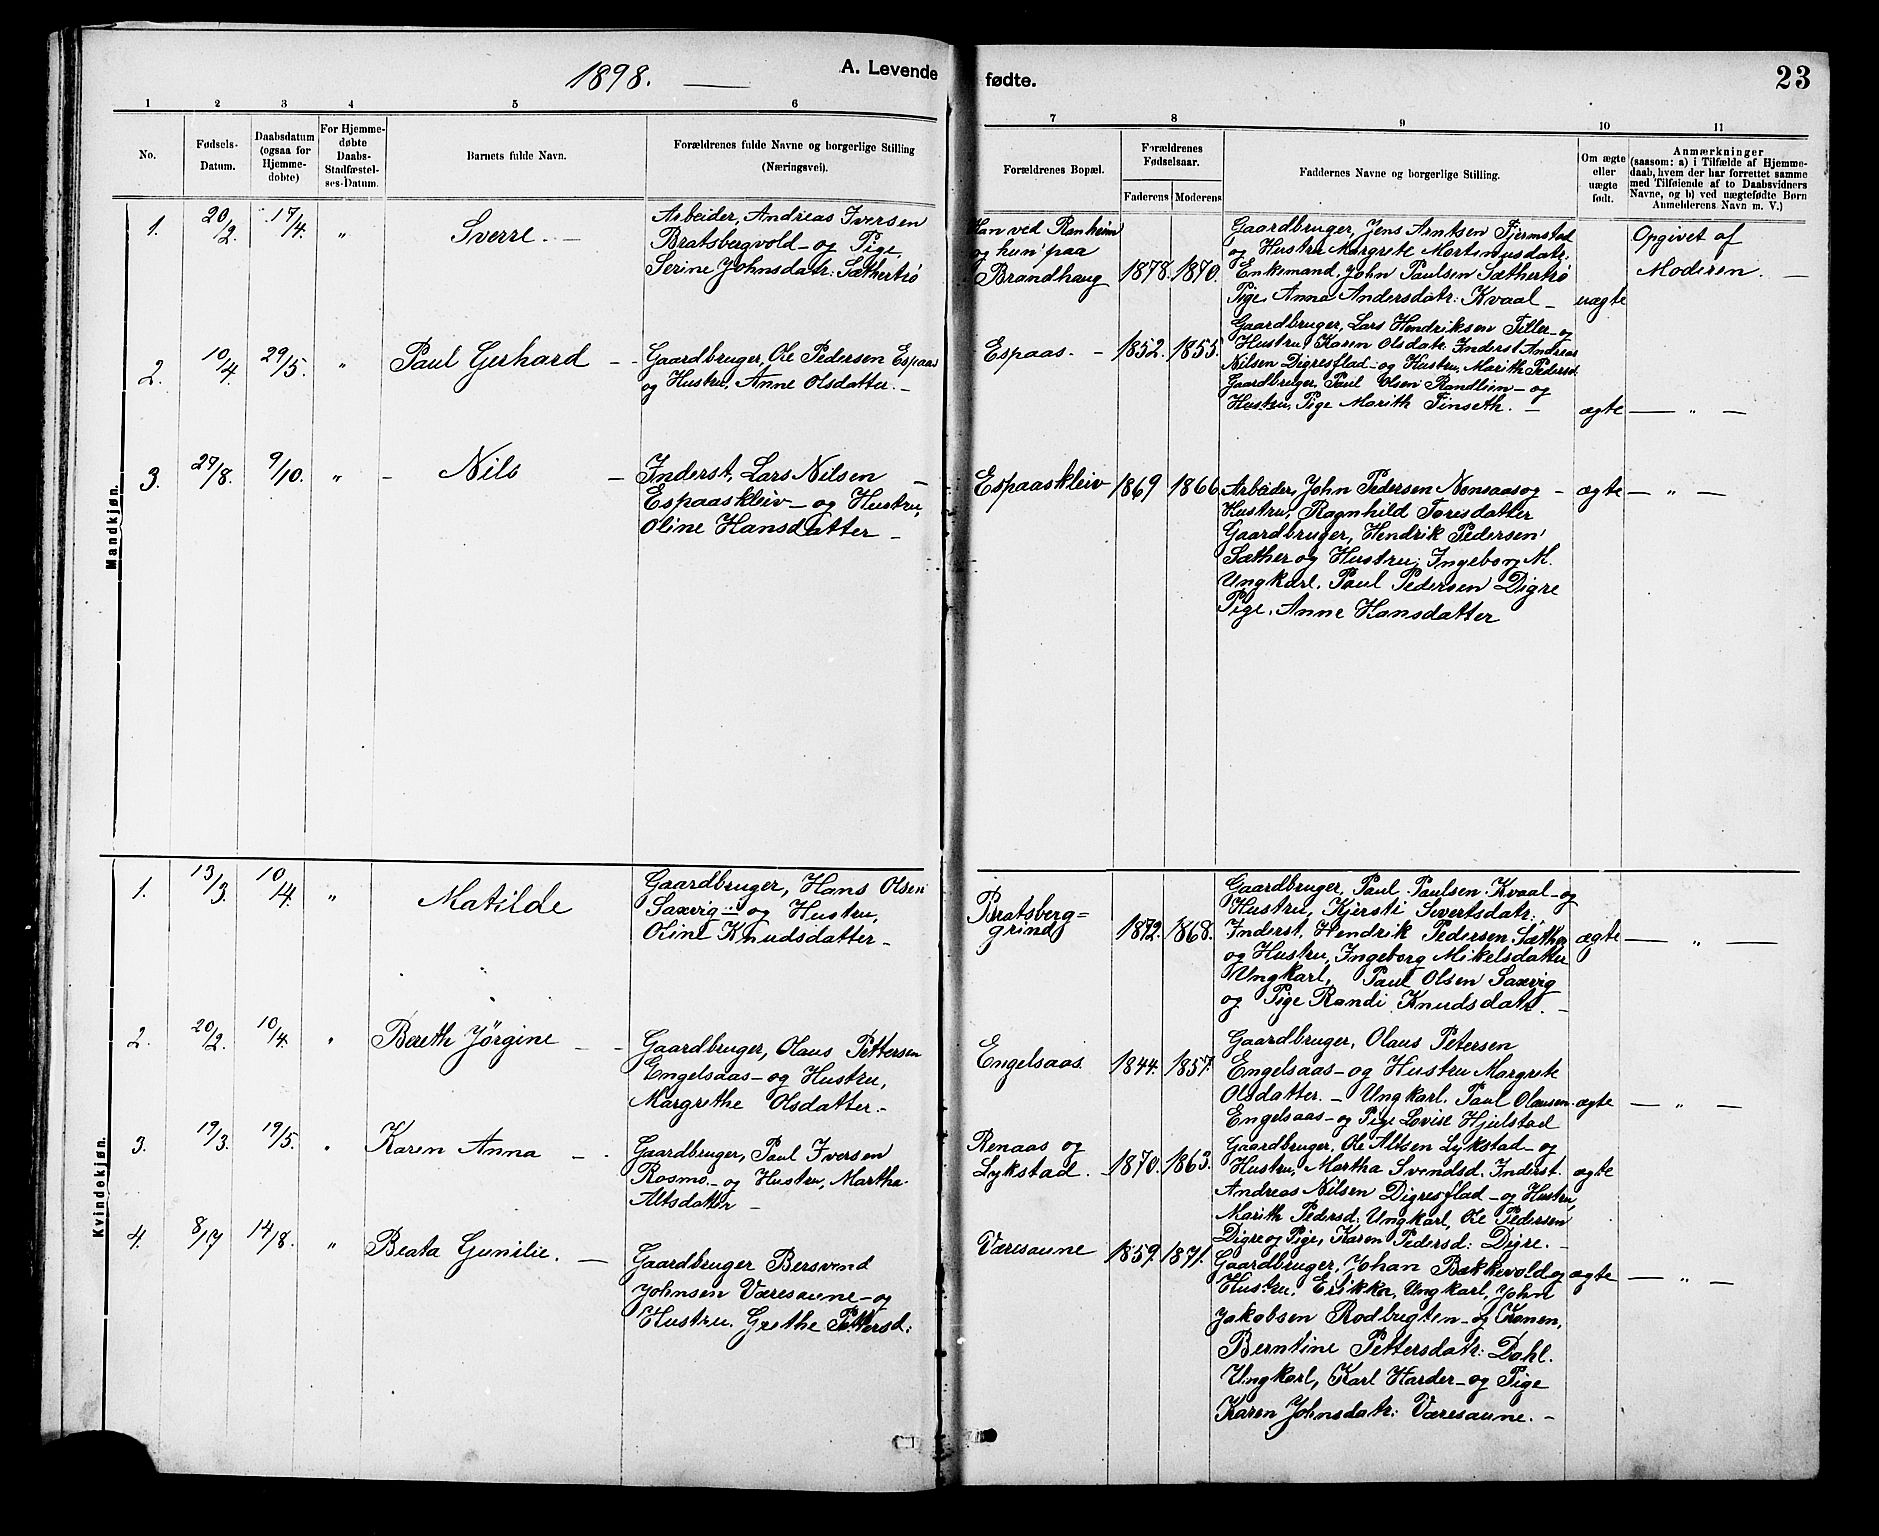 1898. —
A. Levende
fødte.
23
1
2
3
4
5
6
7
8
9
10
11
No.
Fødsels-
Datum.
Daabsdatum
(ogsaa for
Hjemme-
døbte)
For Hjemme-
døbte
Daabs-
Stadfæstel-
ses-Datum.
Barnets fulde Navn.
Forældrenes fulde Navne og borgerlige Stilling
(Næringsvei).
Forældrenes Bopæl.
Forældrenes
Fødselsaar.
Faderens
Moderens
Faddernes Navne og borgerlige Stilling.
Om ægte
eller
uægte
født.
Anmærkninger
(saasom: a) i Tilfælde af Hjemme-
daab, hvem der har forrettet samme
med Tilføiende af to Daabsvidners
Navne, og b) ved uægtefødte Børn
Anmelderens Navn m. V.)
Mandkjøn.
1.
20/2.
17/4.
"
Sverre. —
Arbeider, Andreas Iversen
Bratsbergvold – og Pige,
Serine Johnsdatr: Sæthertrø
Han ved Ranheim
og hun paa
Brandhaug
1878.
1870.
Gaardbruger, Jens Arntsen Fjermstad
og Hustru Margrete Mortinusdatr:
Enkemand, John Paulsen Sæthertrø
Pige, Anna Andersdatr: Kvaal –
uægte
Opgivet af
Moderen. —
2.
10/4.
29/5.
"
Paul Gerhard –
Gaardbruger, Ole Pedersen Espaas
og Hustru, Anne Olsdatter. –
Espaas. –
1852.
1855.
Gaardbruger, Lars Hendriksen Tiller – og
Hustru, Karen Olsdatr. Inderst Andreas
Nilsen Digresflad – og Hustru, Marith Pedersd.
Gaardbruger, Paul Olsen Randlien – og
Hustru, Pige Marith Finseth. –
ægte
— " —
3.
29/8.
9/10.
"
– Nils –
Inderst, Lars Nilsen –
Espaaskleiv – og Hustru,
Oline Hansdatter –
Espaaskleiv
1869
1866
Arbeider, John Pedersen Nonsaas og –
Hustru, Ragnhild Toresdatter
Gaardbruger, Hendrik Pedersen
Sæther og Hustru, Ingeborg M.
Ungkarl, Paul Pedersen Digre
Pige, Anne Hansdatter
ægte
— " —
Kvindekjøn.
1.
13/3.
10/4.
"
Matilde
Gaardbruger, Hans Olsen
Saxvig – og Hustru,
Oline Knudsdatter –
Bratsberg=
grind
1872.
1868.
Gaardbruger, Paul Paulsen Kvaal – og
Hustru, Kjersti Sivertsdatr:
Inderst, Hendrik Pedersen Sæther
og Hustru, Ingeborg Mikelsdatter
Ungkarl, Paul Olsen Saxvig
og Pige Randi Knudsdatr. –
ægte
— " —
2.
20/2.
10/4.
"
Bereth Jørgine – –
Gaardbruger, Olaus Pettersen
Engelsaas – og Hustru,
Margrethe Olsdatter. –
Engelsaas
1844.
1857.
Gaardbruger, Olaus Petersen
Engelsaas – og Hustru Margrete
Olsdatter. – Ungkarl. Paul Olausen
Engelsaas – og Pige Lovise Hjulstad
ægte
— " —
3.
19/3.
19/5.
"
Karen Anna –
Gaardbruger, Paul Iversen
Rosmo – og Hustru, Martha
Altsdatter –
Renaas og
Lykstad.
1870.
1863.
Gaardbruger, Ole Altsen Lykstad – og
Hustru, Martha Svendsd. Inderst.
Andreas Nilsen Digresflad – og Hustru,
Marith Pedersd: Ungkarl, Ole Pedersen
Digre og Pige, Karen Pedersd: Digre. –
ægte
4.
8/7
14/8.
"
Beata Gunilie. –
Gaardbruger Bersvend
Johnsen Væresaune – og
Hustru. Grethe Pettersd:
Væresaune
1859.
1871.
Gaardbruger, Johan Bækkevold og
Hustru, Erikka, Ungkarl, John
Jakobsen Rodbugten – og Konen,
Berntine Pettersdatr: Dahl.
Ungkarl, Karl Harder – og Pige
Karen Johnsdatr: Væresaune. –
ægte
— " —